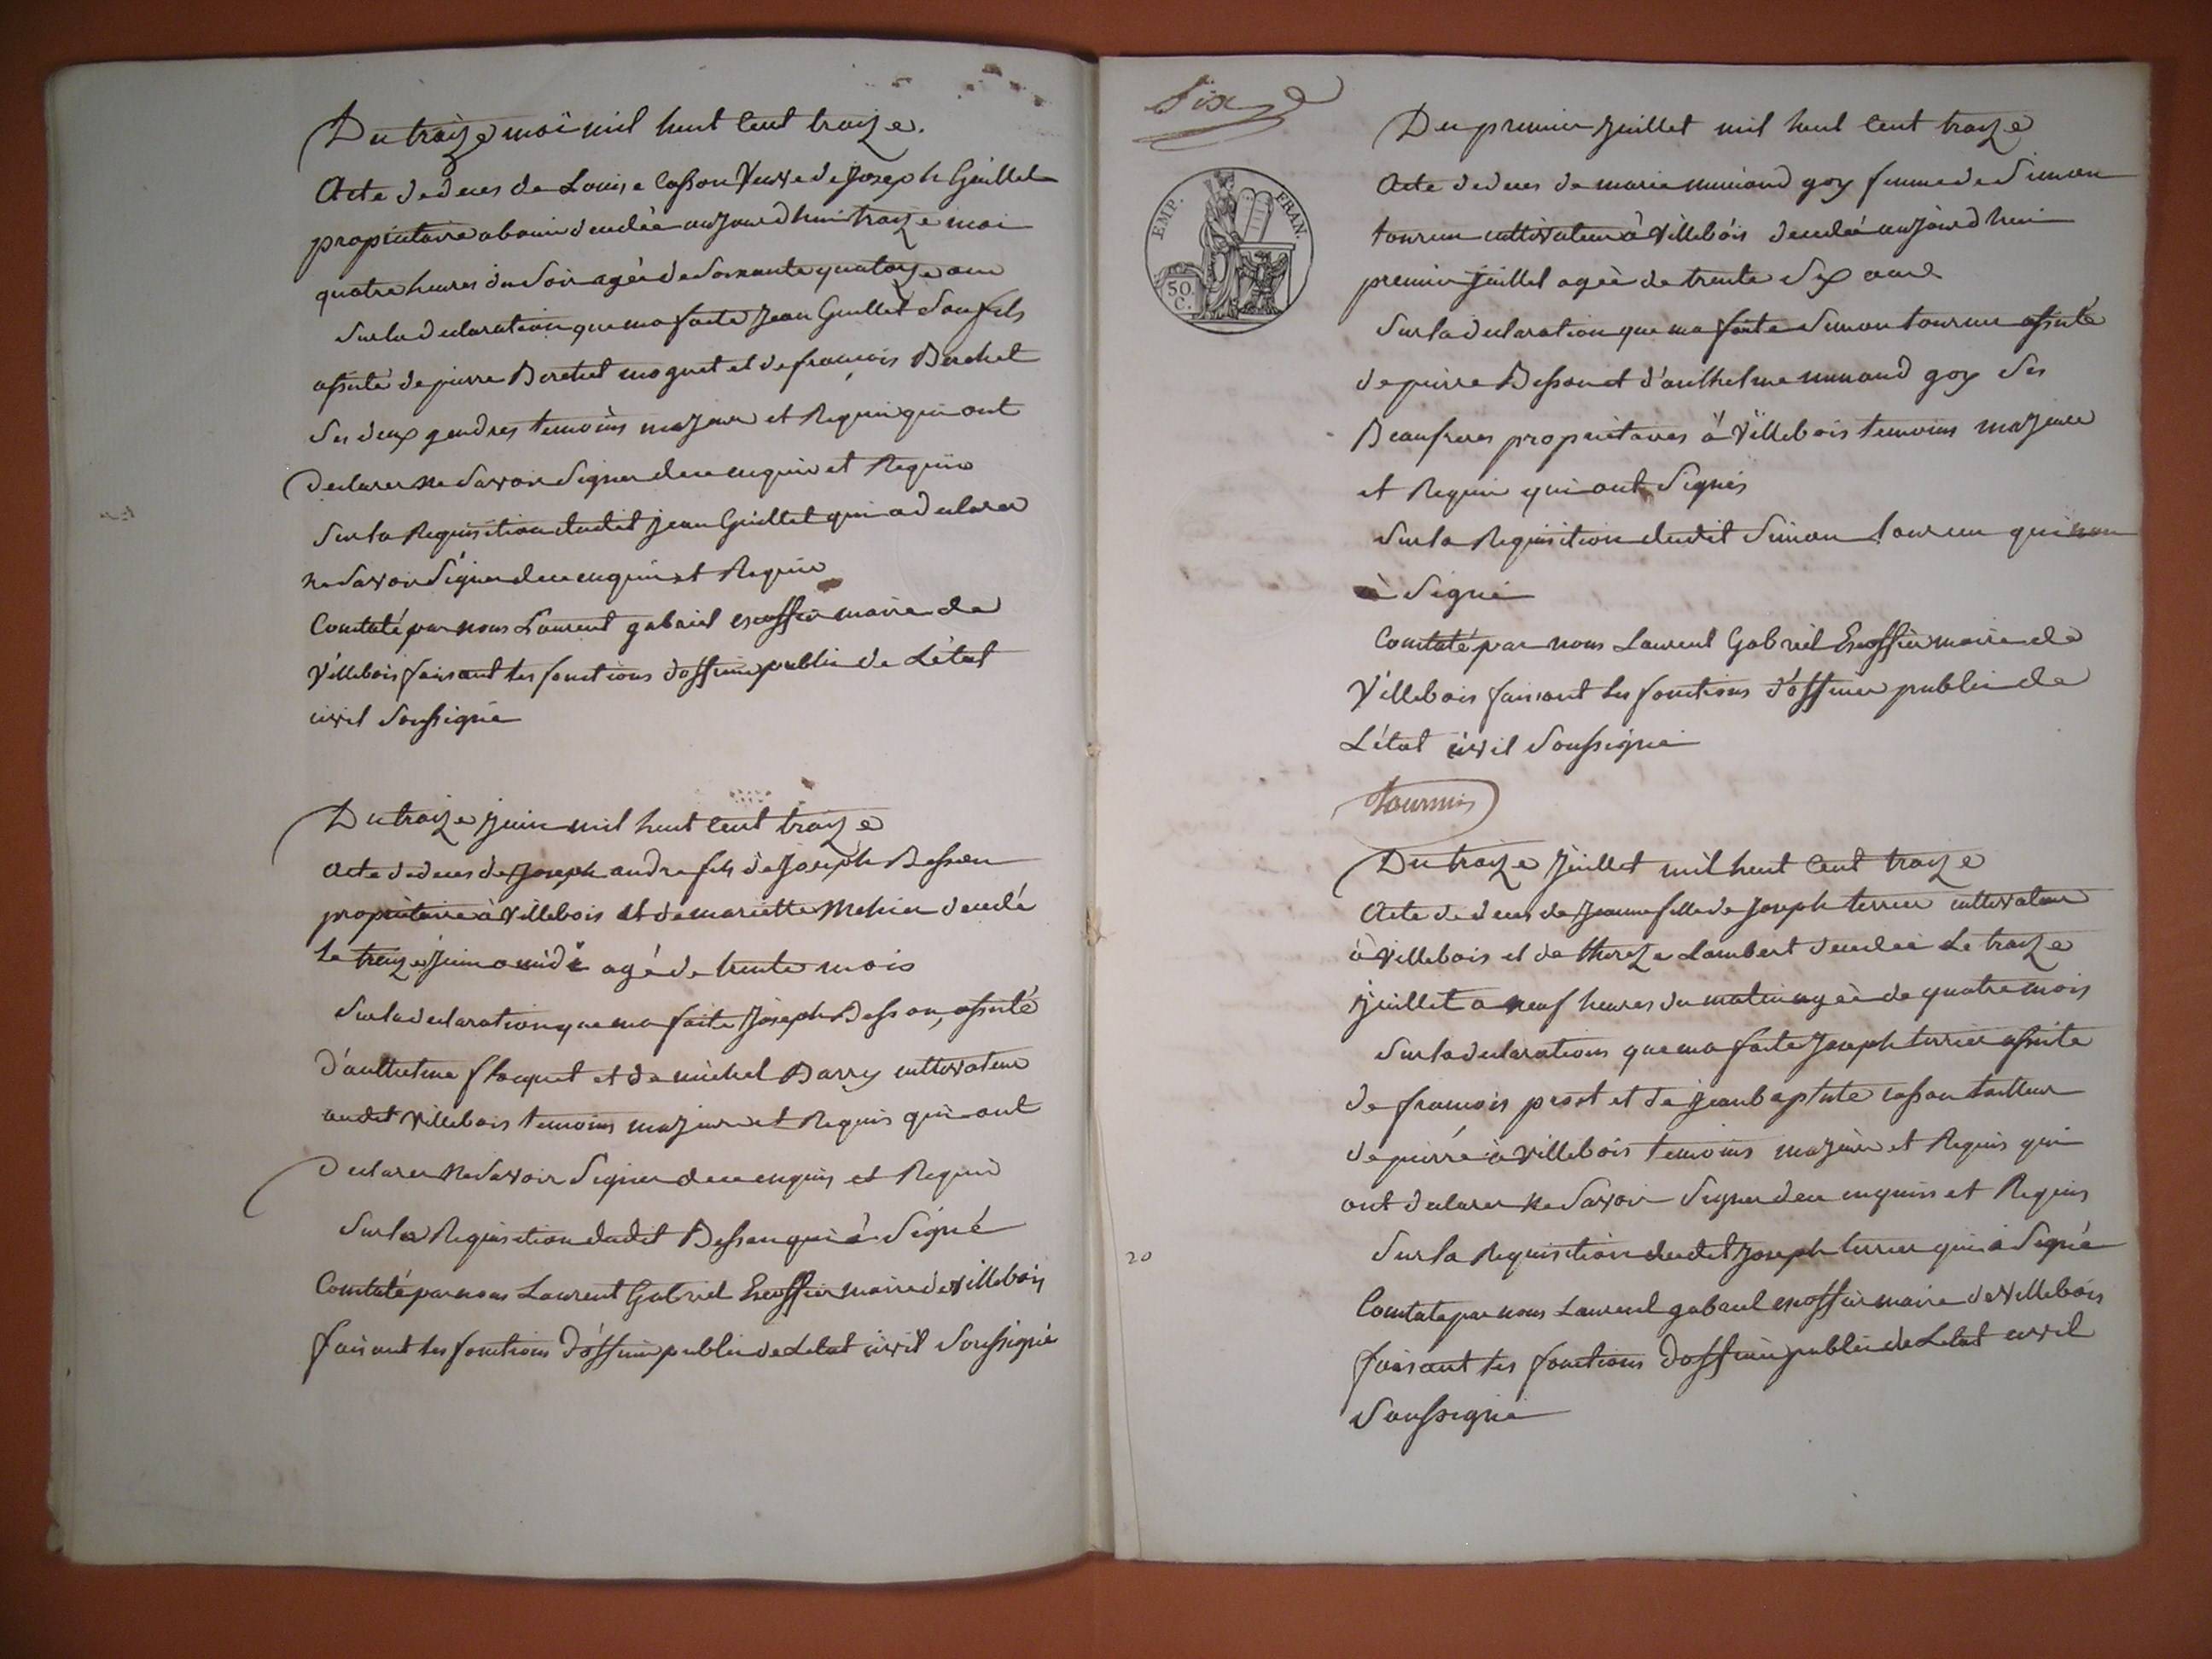 Du traize moi mil huit Cent traize.
Acte de deces de Louise Casson Veuve de Joseph Guillet
propietaire a bouis decedée aujourd huin traize moi
quatre heures du Soir agée de Soixante quatorze ans
Sur la declaration que ma faite Jean Guillet Son fils
assité de pierre Berchet moguet et de françois Berchet
Ses deux gendres temoins majeur et Requis qui ont
declarer ne Savoir Signer de ce enquis et Requis
Sur la Requisition dudit jean Guillet qui a declarer
ne Savoir Signer de ce enquis et Requis
Contaté par nous Laurent gabriel escoffier maire de
Villebois faisant les fonctions d'officier public de L'état
civil Soussigné
Du traize juin mil huit Cent traize
Acte de deces de Joseph andre fils de Joseph Besson
proprietaire à Villebois et de mariette Mehier decedé
Le traize Juin a midi agé de trente mois
Sur la declaration que ma faite Joseph Besson, assité
d'anthelme floquet et de michel Barry cultivateur
audit Villebois temoins majeur et Requis qui ont
Declarer ne Savoir Signer de ce enquis et Requis
Sur la Requisition dudit Besson qui à Signé
Contaté par nous Laurent Gabriel Escoffier maire de Villebois
faisant les fonctions d'officier public de Letat civil Soussigné
Six
EMP. FRAN.
50
C.
Du premier Juillet mil huit Cent traize
Acte de deces de marie munand goy femme de Simon
tournier cultivateur à Villebois decedée aujourd huin
premier juillet agée de trente Six ans
Sur la declaration que ma faite Simon tournier assité
de pierre Besson et d'anthelme munand goy Ses
Beaufreres proprietaires à Villebois temoins majeur
et Requis qui ont Signés
Sur la Requisition dudit Simon tournier qui
à Signé
Contaté par nous Laurent Gabriel Escoffier maire de
Villebois faisant les fonctions d'officier public de
L'état civil Soussigné
Tournier
Du traize Juillet mil huit Cent traize
Acte de deces de Jeanne fille de Joseph terrier cultivateur
à Villebois et de thereze Lambert decedée Le traize
Juillet a neuf heures du matin agée de quatre mois
Sur la declarations que ma faite Joseph terrier assité
de françois prost et de Jean baptiste casson tailleur
de pierre à Villebois temoins majeur et Requis qui
ont declarer ne Savoir Signer de ce enquis et Requis
Sur la Requisition dudit Joseph terrier qui à Signé
Contaté par nous Laurent gabriel escoffier maire de Villebois
faisant les fonctions d'officier public de Letat civil
Soussigné
20